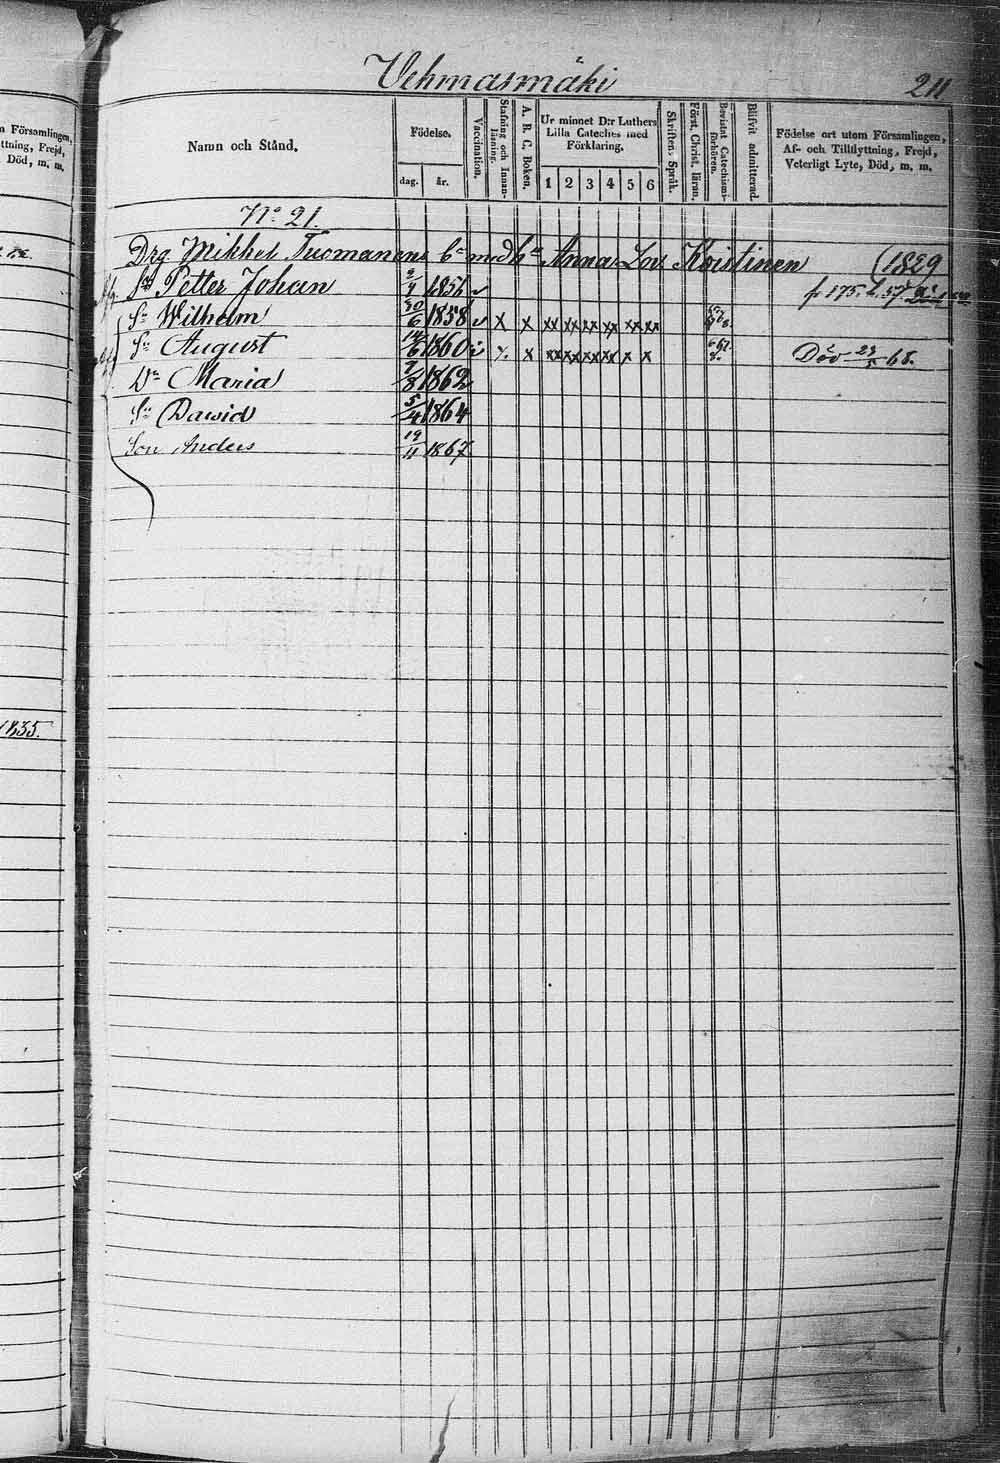 Vehmasmäki 211
n Församlingen,
ttning, Frejd,
Död, m. m.
Namn och Stånd.
Födelse.
dag. år.
Vaccination.
Stafning och Innan-läsning.
A. B. C. Boken.
Ur minnet D:r Luthers
Lilla Cateches med
Förklaring.
1 2 3 4 5 6
Skriften. Språk.
Först. Christ. läran.
Bevistat Catechismi-förhören.
Blifvit admitterad.
Födelse ort utom Församlingen,
Af- och Tillflyttning, Frejd,
Veterligt Lyte, Död, m. m.
No 21.
Drg Mikkel Tuomanens med Anna Lov. Koistinen (1829
Sn Petter Johan 1856 v fr 175. 57
Sn Wilhelm 30/6 1858 v x x xx xx xx xx xx xx
Sn August 14/6 1860 x xx xx xx xx x x Döv 68.
Dr Maria 9/8 1862
Sn Dawid 5/4 1864
Son Anders 19/11 1867
1835.